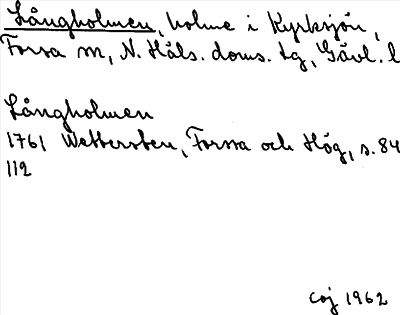 Långholmen, holme i Kyrksjön,
Forsa sn, N. Häls. doms. tg, Gävl. l
Långholmen
1761 Wettersten, Forssa och Hög, s. 84
112
coj 1962